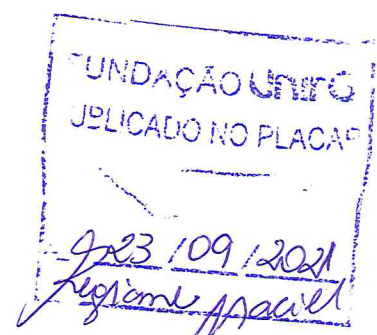 FUNDAÇÃO UnirG
PUBLICADO NO PLACAR
23 / 09 / 2021
Maciel